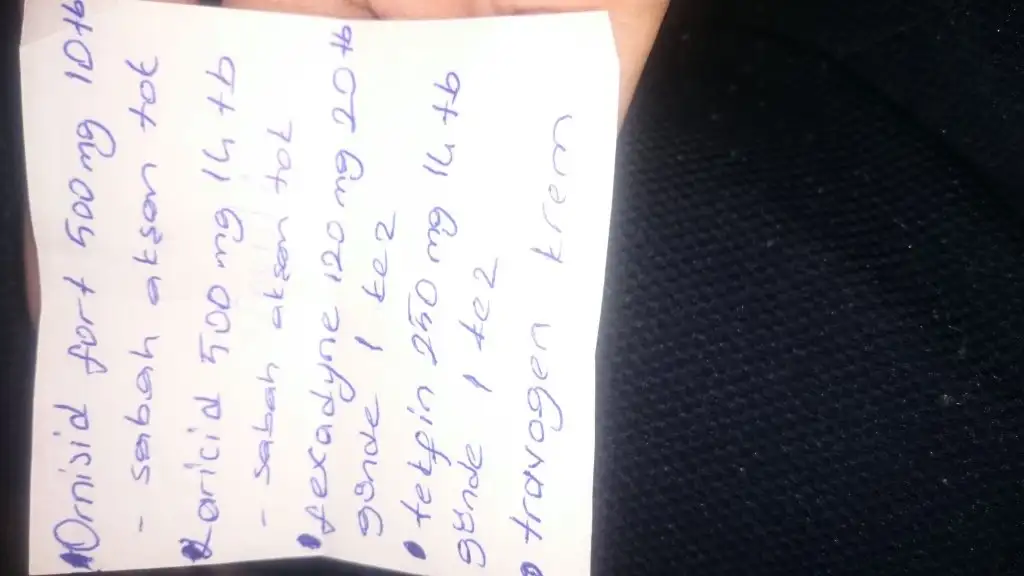 Ornisid fort 500 mg 10 tb
- sabah akşam tok
Laricid 500 mg 14 tb
- sabah akşam tok
• fexadyne 120 mg 20 tb
günde 1 kez
• tekfin 250 mg 14 tb
günde 1 kez
• travogen krem